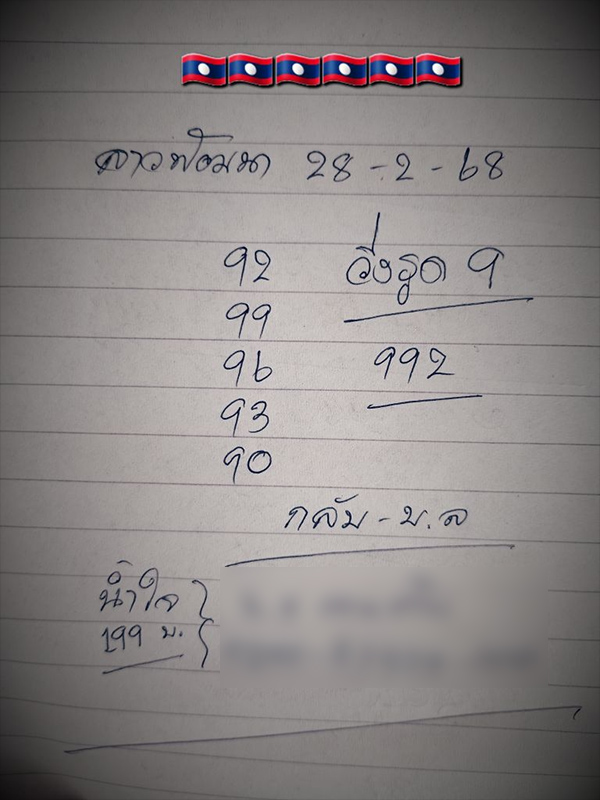 ลาวพัฒนา 28-2-68
92 วิ่งรูด 9
99
96 992
93
90
กลับ - บ.ล
น้ำใจ
199 บ.